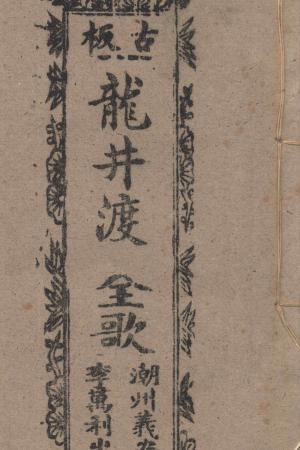 古板
龍井渡 全歌
潮州義安
李萬利出